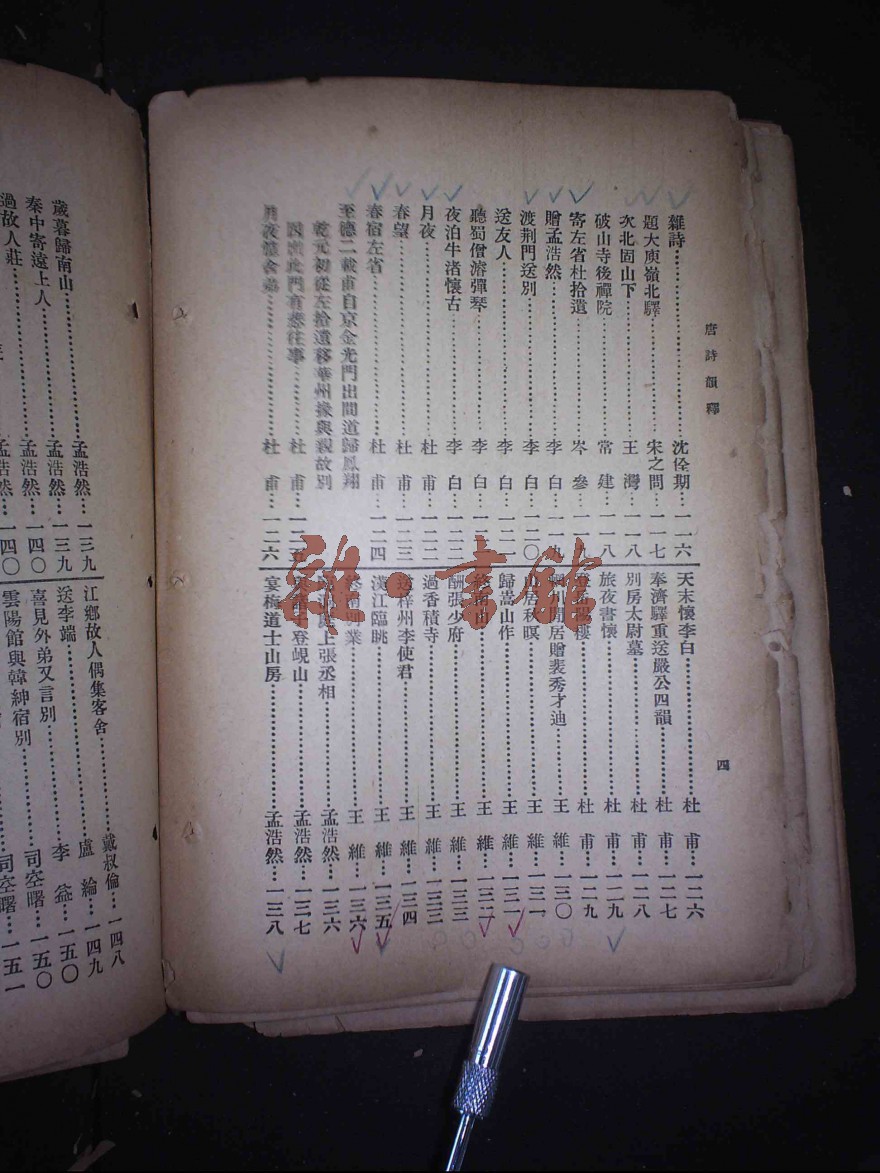 唐詩韻釋
四
雜詩……沈佺期…一一六
題大庾嶺北驛……宋之問…一一七
次北固山下……王灣…一一八
破山寺後禪院……常建…一一八
寄左省杜拾遺……岑參…
贈孟浩然……李白…一一九
渡荆門送別……李白…一二〇
送友人……李白…一二一
聽蜀僧濬彈琴……李白…一二
夜泊牛渚懷古……李白…一二二
月夜……杜甫…一二二
春望……杜甫…一二三
春宿左省……杜甫…一二四
至德二載甫自京金光門出間道歸鳳翔
乾元初從左拾遺移華州掾與親故別
因出此門有悲往事……杜甫…一二五
月夜憶舍弟……杜甫…一二六
天末懷李白……杜甫…一二六
奉濟驛重送嚴公四韻……杜甫…一二七
別房太尉墓……杜甫…一二八
旅夜書懷……杜甫…一二九
登岳陽樓……杜甫…一二九
輞川閒居贈裴秀才迪……王維…一三〇
山居秋暝……王維…一三一
歸嵩山作……王維…一三一
終南山……王維…一三二
酬張少府……王維…一三三
過香積寺……王維…一三三
送梓州李使君……王維…一三四
漢江臨眺……王維…一三五
終南別業……王維…一三六
上張丞相……孟浩然…一三六
登峴山……孟浩然…一三七
宴梅道士山房……孟浩然…一三八
歲暮歸南山……孟浩然…一三九
秦中寄遠上人……孟浩然…一四〇
過故人莊……孟浩然…一四〇
江鄉故人偶集客舍……戴叔倫…一四八
送李端……盧綸…一四九
喜見外弟又言別……李益…一五〇
雲陽館與韓紳宿別……司空曙…一五〇
司空曙…一五一
雜·書館